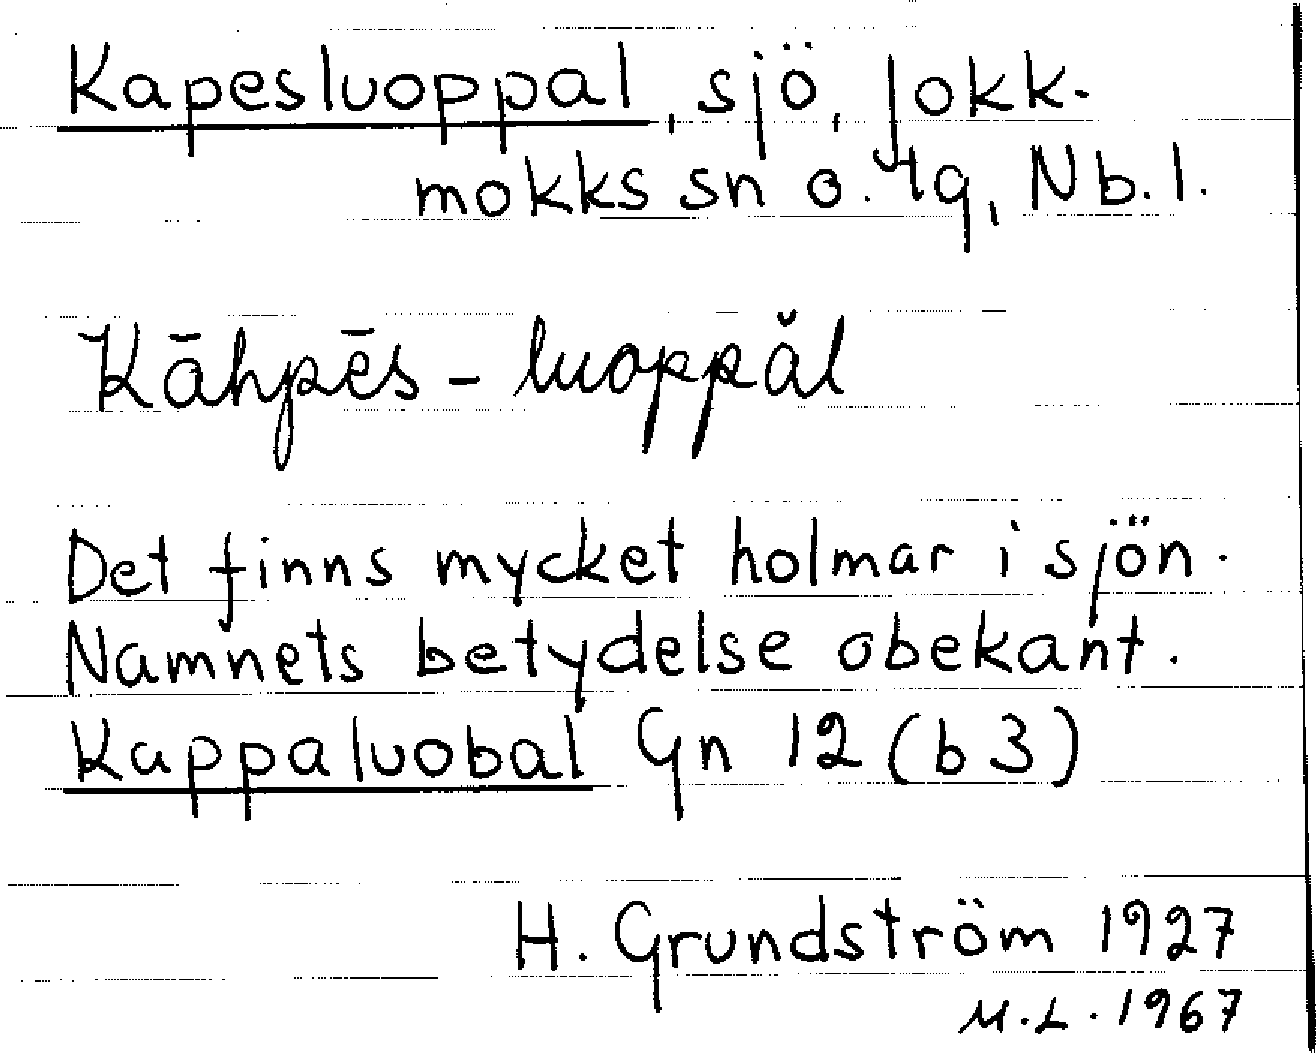 Kapesluoppal, sjö, Jokk-
mokks sn o. lg, Nb. l.
Kāhpēs - luoppăl
Det finns mycket holmar i sjön.
Namnets betydelse obekant.
Kappaluobal Gn 12 (b 3)
H. Grundström 1927
M.L. 1967